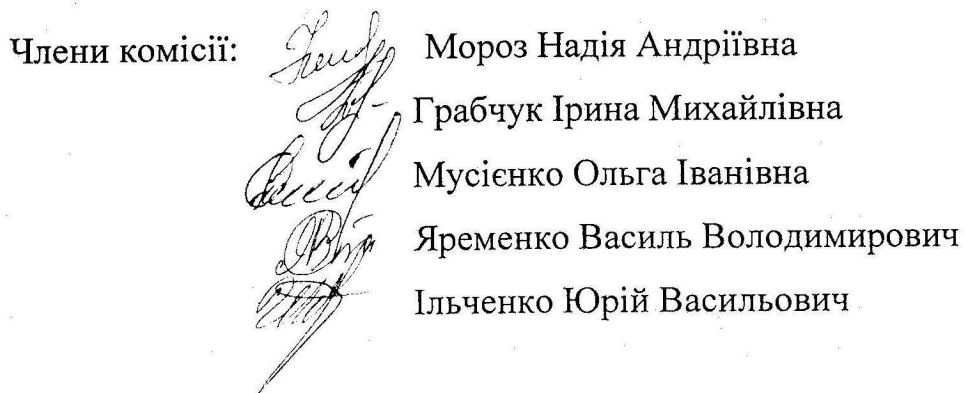 Члени комісії: Мороз Надія Андріївна
Грабчук Ірина Михайлівна
Мусієнко Ольга Іванівна
Яременко Василь Володимирович
Ільченко Юрій Васильович